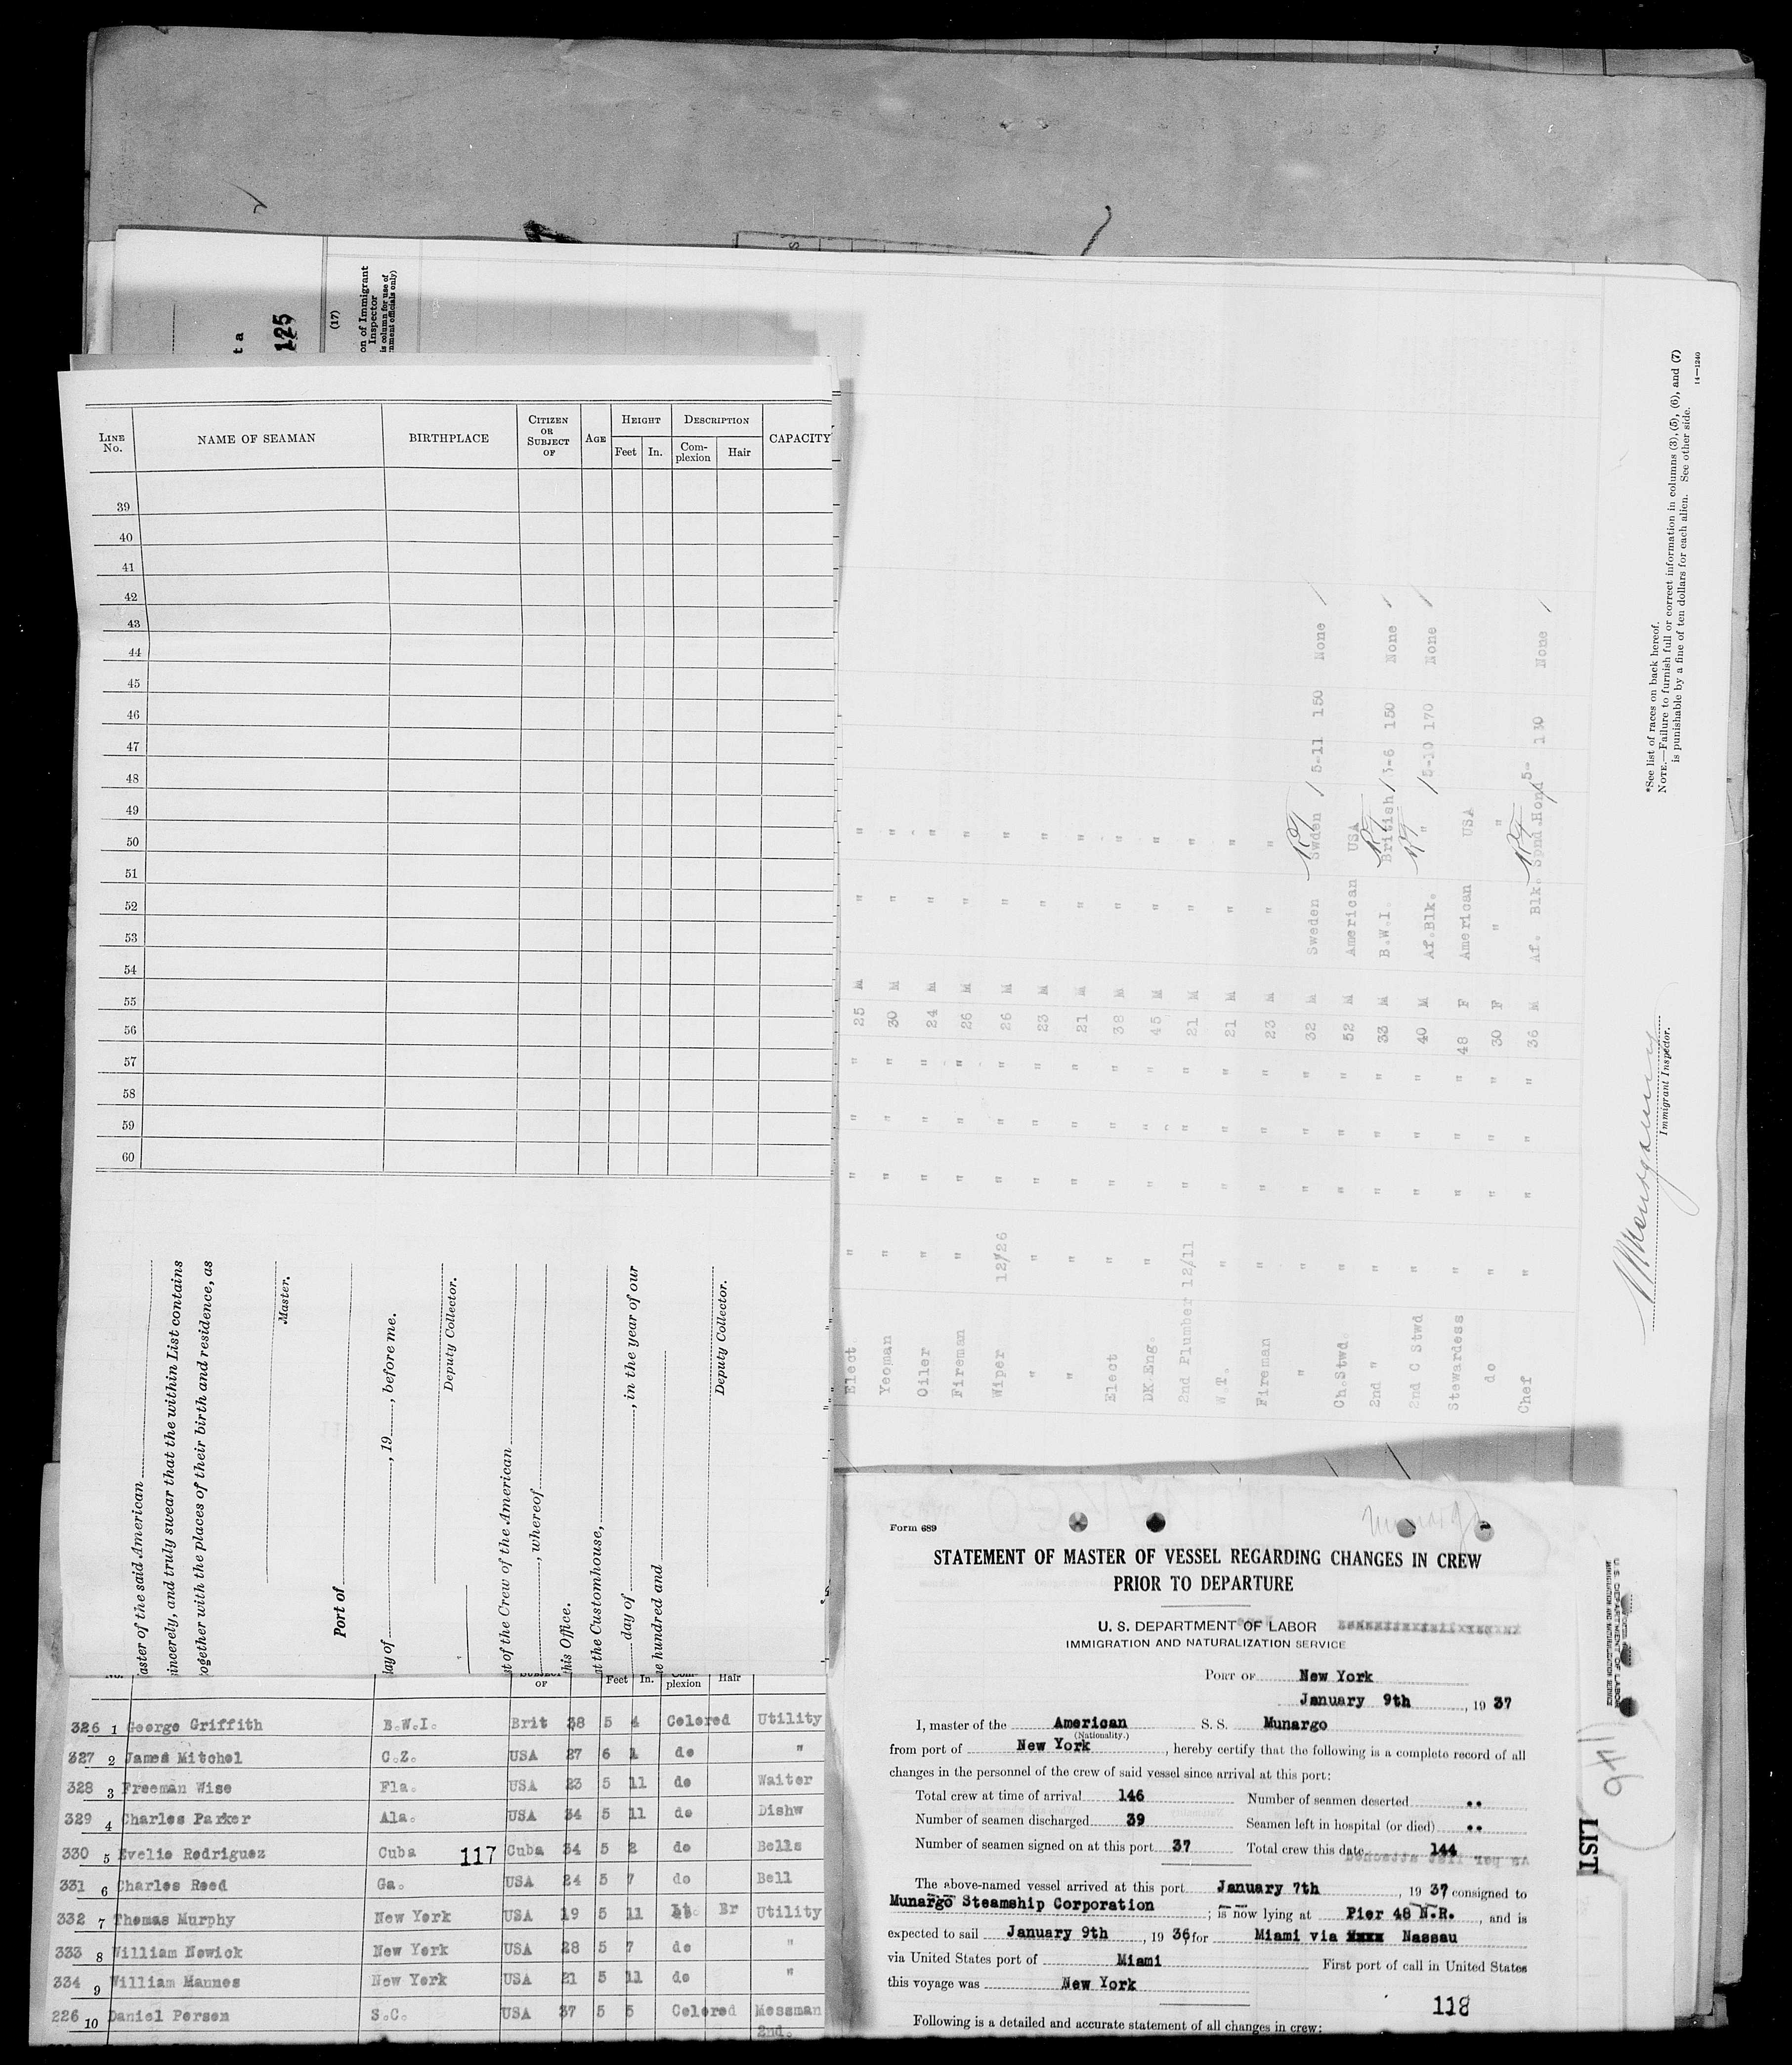 t a
125
(17)
on of Immigrant
Inspector
is column for use of
nment officials only)
LINE No.
NAME OF SEAMAN
BIRTHPLACE
CITIZEN OR SUBJECT OF
AGE
HEIGHT
Feet In.
DESCRIPTION
Com-plexion Hair
CAPACITY
39
40
41
42
43
44
45
46
47
48
49
50
51
52
53
54
55
56
57
58
59
60
aster of the said American
incerely, and truly swear that the within List contains
ogether with the places of their birth and residence, as
Master.
Port of
lay of , 19 , before me.
Deputy Collector.
st of the Crew of the American
, whereof
his Office.
t the Customhouse,
day of , in the year of our
e hundred and
Deputy Collector.
OF Feet In. plexion Hair
326 1 George Griffith B.W.I. Brit 38 5 4 Colored Utility
327 2 James Mitchel C.Z. USA 27 6 1 do "
328 3 Freeman Wise Fla. USA 23 5 11 do Waiter
329 4 Charles Parker Ala. USA 34 5 11 do Dishw
330 5 Evelio Rodriguez Cuba 117 Cuba 34 5 2 do Bells
331 6 Charles Reed Ga. USA 24 5 7 do Bell
332 7 Thomas Murphy New York USA 19 5 11 Lt. Br Utility
333 8 William Nowick New York USA 28 5 7 do "
334 9 William Mannes New York USA 21 5 11 do "
226 10 Daniel Person S.C. USA 37 5 5 Colored Messman
2nd.
Elect. " " " " 25 M " "
Yeoman " " " " 30 M " "
Oiler " " " " 24 M " "
Fireman " " " " 26 M " "
Wiper 12/26 " " " 26 M " "
" " " " " 23 M " "
" " " " " 21 M " "
Elect " " " " 38 M " "
DK Eng. " " " " 45 M " "
2nd Plumber 12/11 " " " 21 M " "
W.T. " " " " 21 M " "
Fireman " " " " 23 M " "
" " " " " 32 M Sweden Sweden 5-11 150 None
Ch.Stwd. " " " " 52 M American USA
2nd " " " " " 33 M B.W.I. British 5-6 150 None
2nd C Stwd " " " " 40 M Af.Blk. " 5-10 170 None
Stewardess " " " " 48 F American USA
do " " " " 30 F " "
Chef " " " " 36 M Af. Blk. Spnd Hond 5- 130 None
Immigrant Inspector.
*See list of races on back hereof.
NOTE.—Failure to furnish full or correct information in columns (3), (5), (6), and (7)
is punishable by a fine of ten dollars for each alien. See other side.
14—1240
Form 689
Munargo
STATEMENT OF MASTER OF VESSEL REGARDING CHANGES IN CREW
PRIOR TO DEPARTURE
U. S. DEPARTMENT OF LABOR
IMMIGRATION AND NATURALIZATION SERVICE
PORT OF New York
January 9th , 19 37
I, master of the American S. S. Munargo
(Nationality.)
from port of New York , hereby certify that the following is a complete record of all
changes in the personnel of the crew of said vessel since arrival at this port:
Total crew at time of arrival 146 Number of seamen deserted ..
Number of seamen discharged 39 Seamen left in hospital (or died) ..
Number of seamen signed on at this port 37 Total crew this date 144
The above-named vessel arrived at this port January 7th , 19 37 consigned to
Munargo Steamship Corporation ; is now lying at Pier 48 N.R. , and is
expected to sail January 9th , 19 36, for Miami via xxxx Nassau
via United States port of Miami First port of call in United States
this voyage was New York
118
Following is a detailed and accurate statement of all changes in crew:
U. S. DEPARTMENT OF LABOR
IMMIGRATION AND NATURALIZATION SERVICE
146
LIST